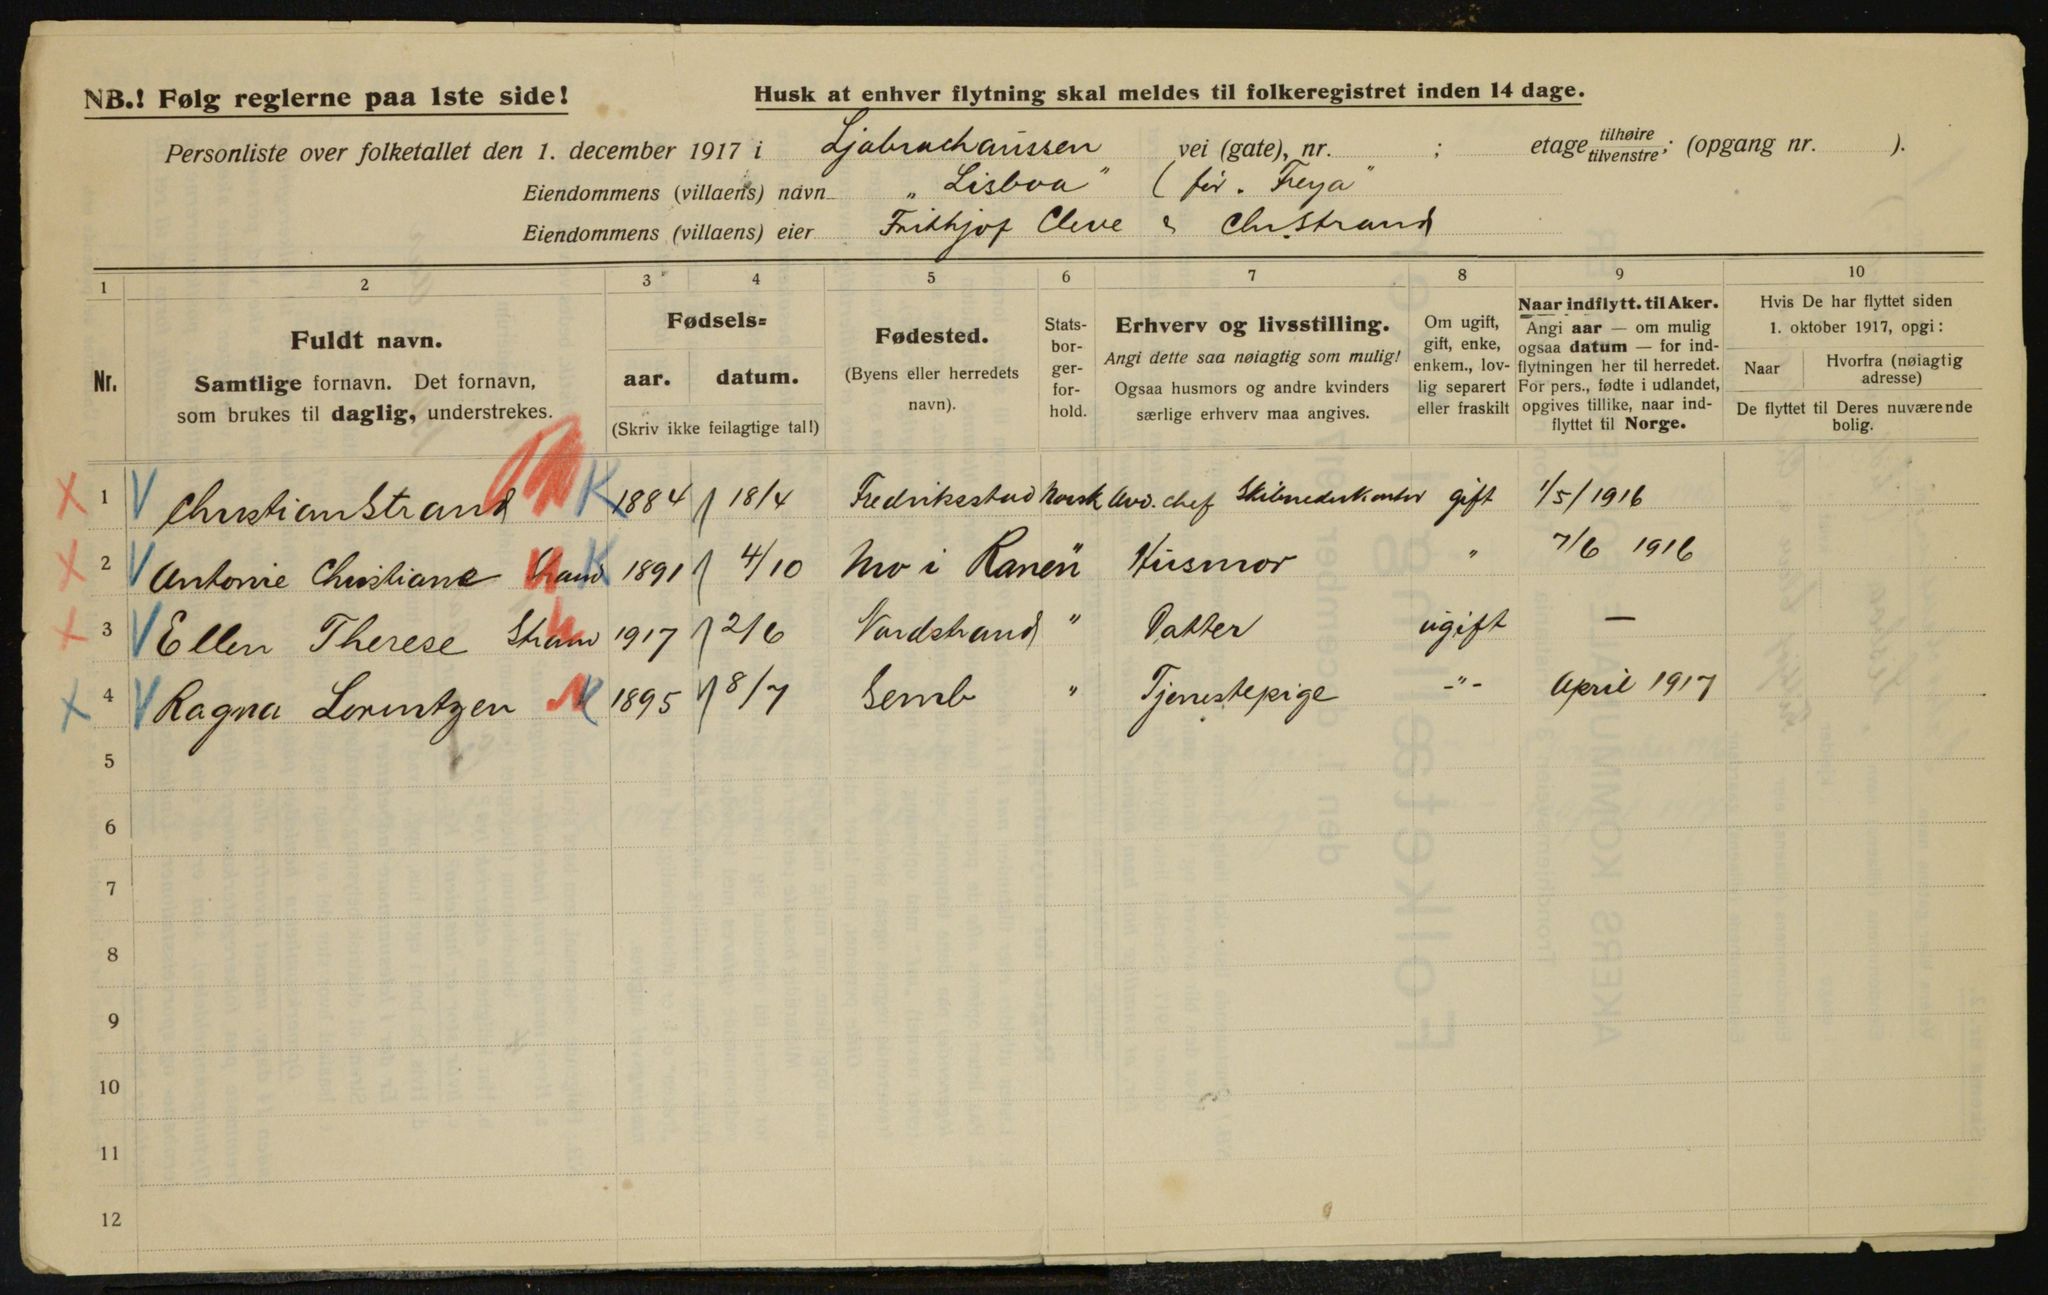 NB.! Følg reglerne paa 1ste side!
Husk at enhver flytning skal meldes til folkeregistret inden 14 dage.
Personliste over folketallet den 1. december 1917 i Ljabruchaussen vei (gate), nr. ; etage tilhøire tilvenstre; (opgang nr. ).
Eiendommens (villaens) navn „Lisboa" (før „Freya"
Eiendommens (villaens) eier Frithjof Cleve & Chr. Strand
1 2 3 4 5 6 7 8 9 10
Nr.
Fuldt navn.
Samtlige fornavn. Det fornavn,
som brukes til daglig, understrekes.
Fødsels=
aar. datum.
(Skriv ikke feilagtige tal!)
Fødested.
(Byens eller herredets
navn).
Stats-
bor-
ger-
for-
hold.
Erhverv og livsstilling.
Angi dette saa nøiagtig som mulig!
Ogsaa husmors og andre kvinders
særlige erhverv maa angives.
Om ugift,
gift, enke,
enkem., lov-
lig separert
eller fraskilt
Naar indflytt. til Aker.
Angi aar — om mulig
ogsaa datum — for ind-
flytningen her til herredet.
For pers., fødte i utlandet,
opgives tillike, naar ind-
flyttet til Norge.
Hvis De har flyttet siden
1. oktober 1917, opgi:
Naar
Hvorfra (nøiagtig
adresse)
De flyttet til Deres nuværende
bolig.
X 1 V Christian Strand K 1884 18/4 Fredriksstad Norsk Avd. chef Skibsrederkontor gift 1/5/1916
X 2 V Antonie Christiane Strand K 1891 4/10 Mo i Ranen " Husmor " 7/6 1916
X 3 V Ellen Therese Strand 1917 2/6 Nordstrand " Datter ugift —
X 4 V Ragna Lorentzen K 1895 8/7 Semb " Tjenestepige -"- April 1917
5
6
7
8
9
10
11
12